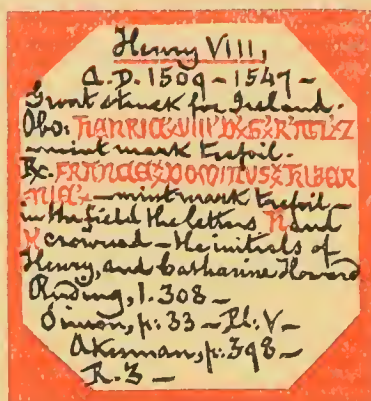 Henry VIII,
A.D. 1509 - 1547 -
Groat struck for Ireland.
Obv: hENRIC'x VIII' D'x G'x R' AGL'x Z
- mint mark trefoil.
R. FRANCIEx DOMINVSx hIBER
NIE'x - mint mark trefoil -
in the field the letters h and
K crowned - the initials of
Henry, and Catharine Howard
Ruding, 1. 308 -
Simon, p: 33 - Pl: V -
Akerman, p: 398 -
R. 3 -